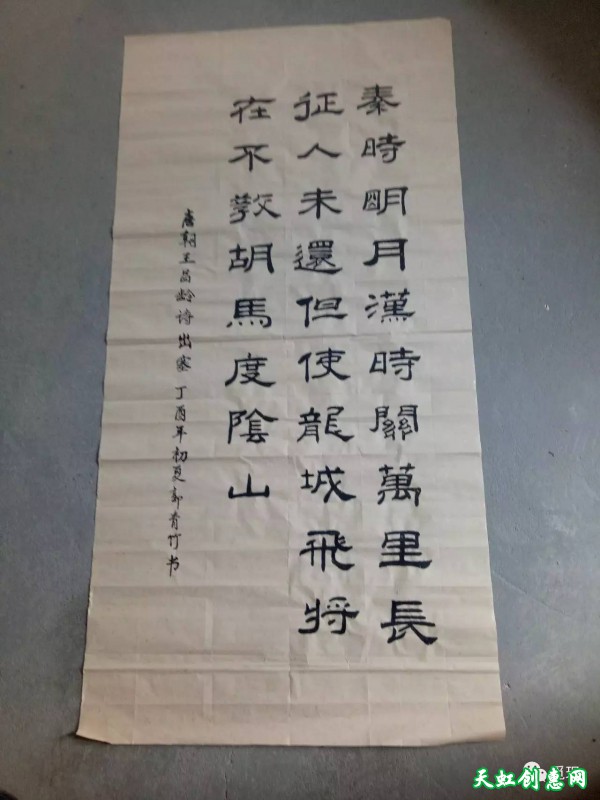 秦時明月漢時關萬里長
征人未還但使龍城飛将
在不敎胡馬度陰山
唐朝王昌龄诗出塞丁酉年初夏郭青竹书
天虹创惠网